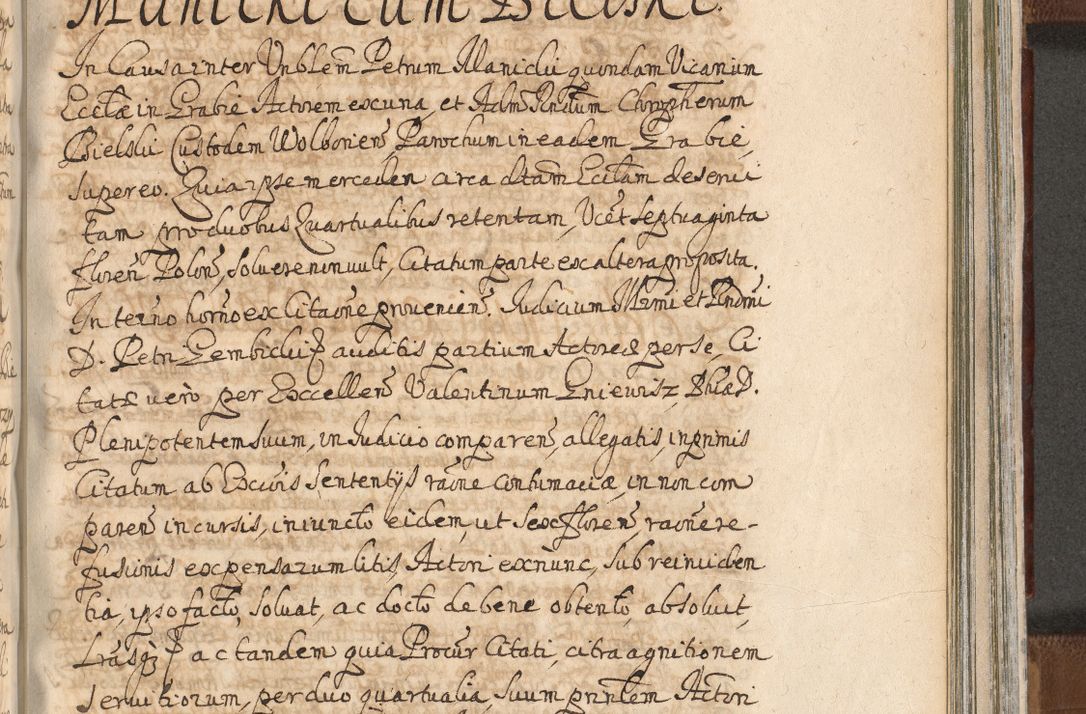 Manicki cum Bielski.
In Causa inter Vnblem̃ Petrum Manicki quondam Vicarium
Eccłæ in Grabie Actorem ex una, et Adm Rñdum Chryzherum
Bielski Custodem Wolborien̄, Parochum in eadem Grabie,
super eo. Quia ipse mercedem circa dtam Eccłam deservi
tam pro duobus Quartualibus retentam, Vcet septuaginta
floreñ Polon̄, solvere non vult, Citatum parte ex altera proposita.
In terño horño ex Citaõne provenien̄. Judicium Illrmi et Rndmi
D. Petri Gembicki auditis partium Actore per se, Ci
tato vero per Excellen̄ Valentinum Gniewisz, Phiæ D.
Plenipotentem suum, in Judicio comparen̄, allegatis, inprimis
Citatum ab Exciõis Sententijs raõne contumaciæ, in non com
paren̄ incursis, iniuncto eidem, ut sex floren̄, raõne re-
fusionis expensarum litis, Actori exnunc, sub reinciden
tia, ipso facto, solvat, ac docto de bene obtento, absolvit,
Lrasqz ac tandem quia Procur Citati, citra agnitionem
servitiorum, per duo quartualia, suum prñtem Actori